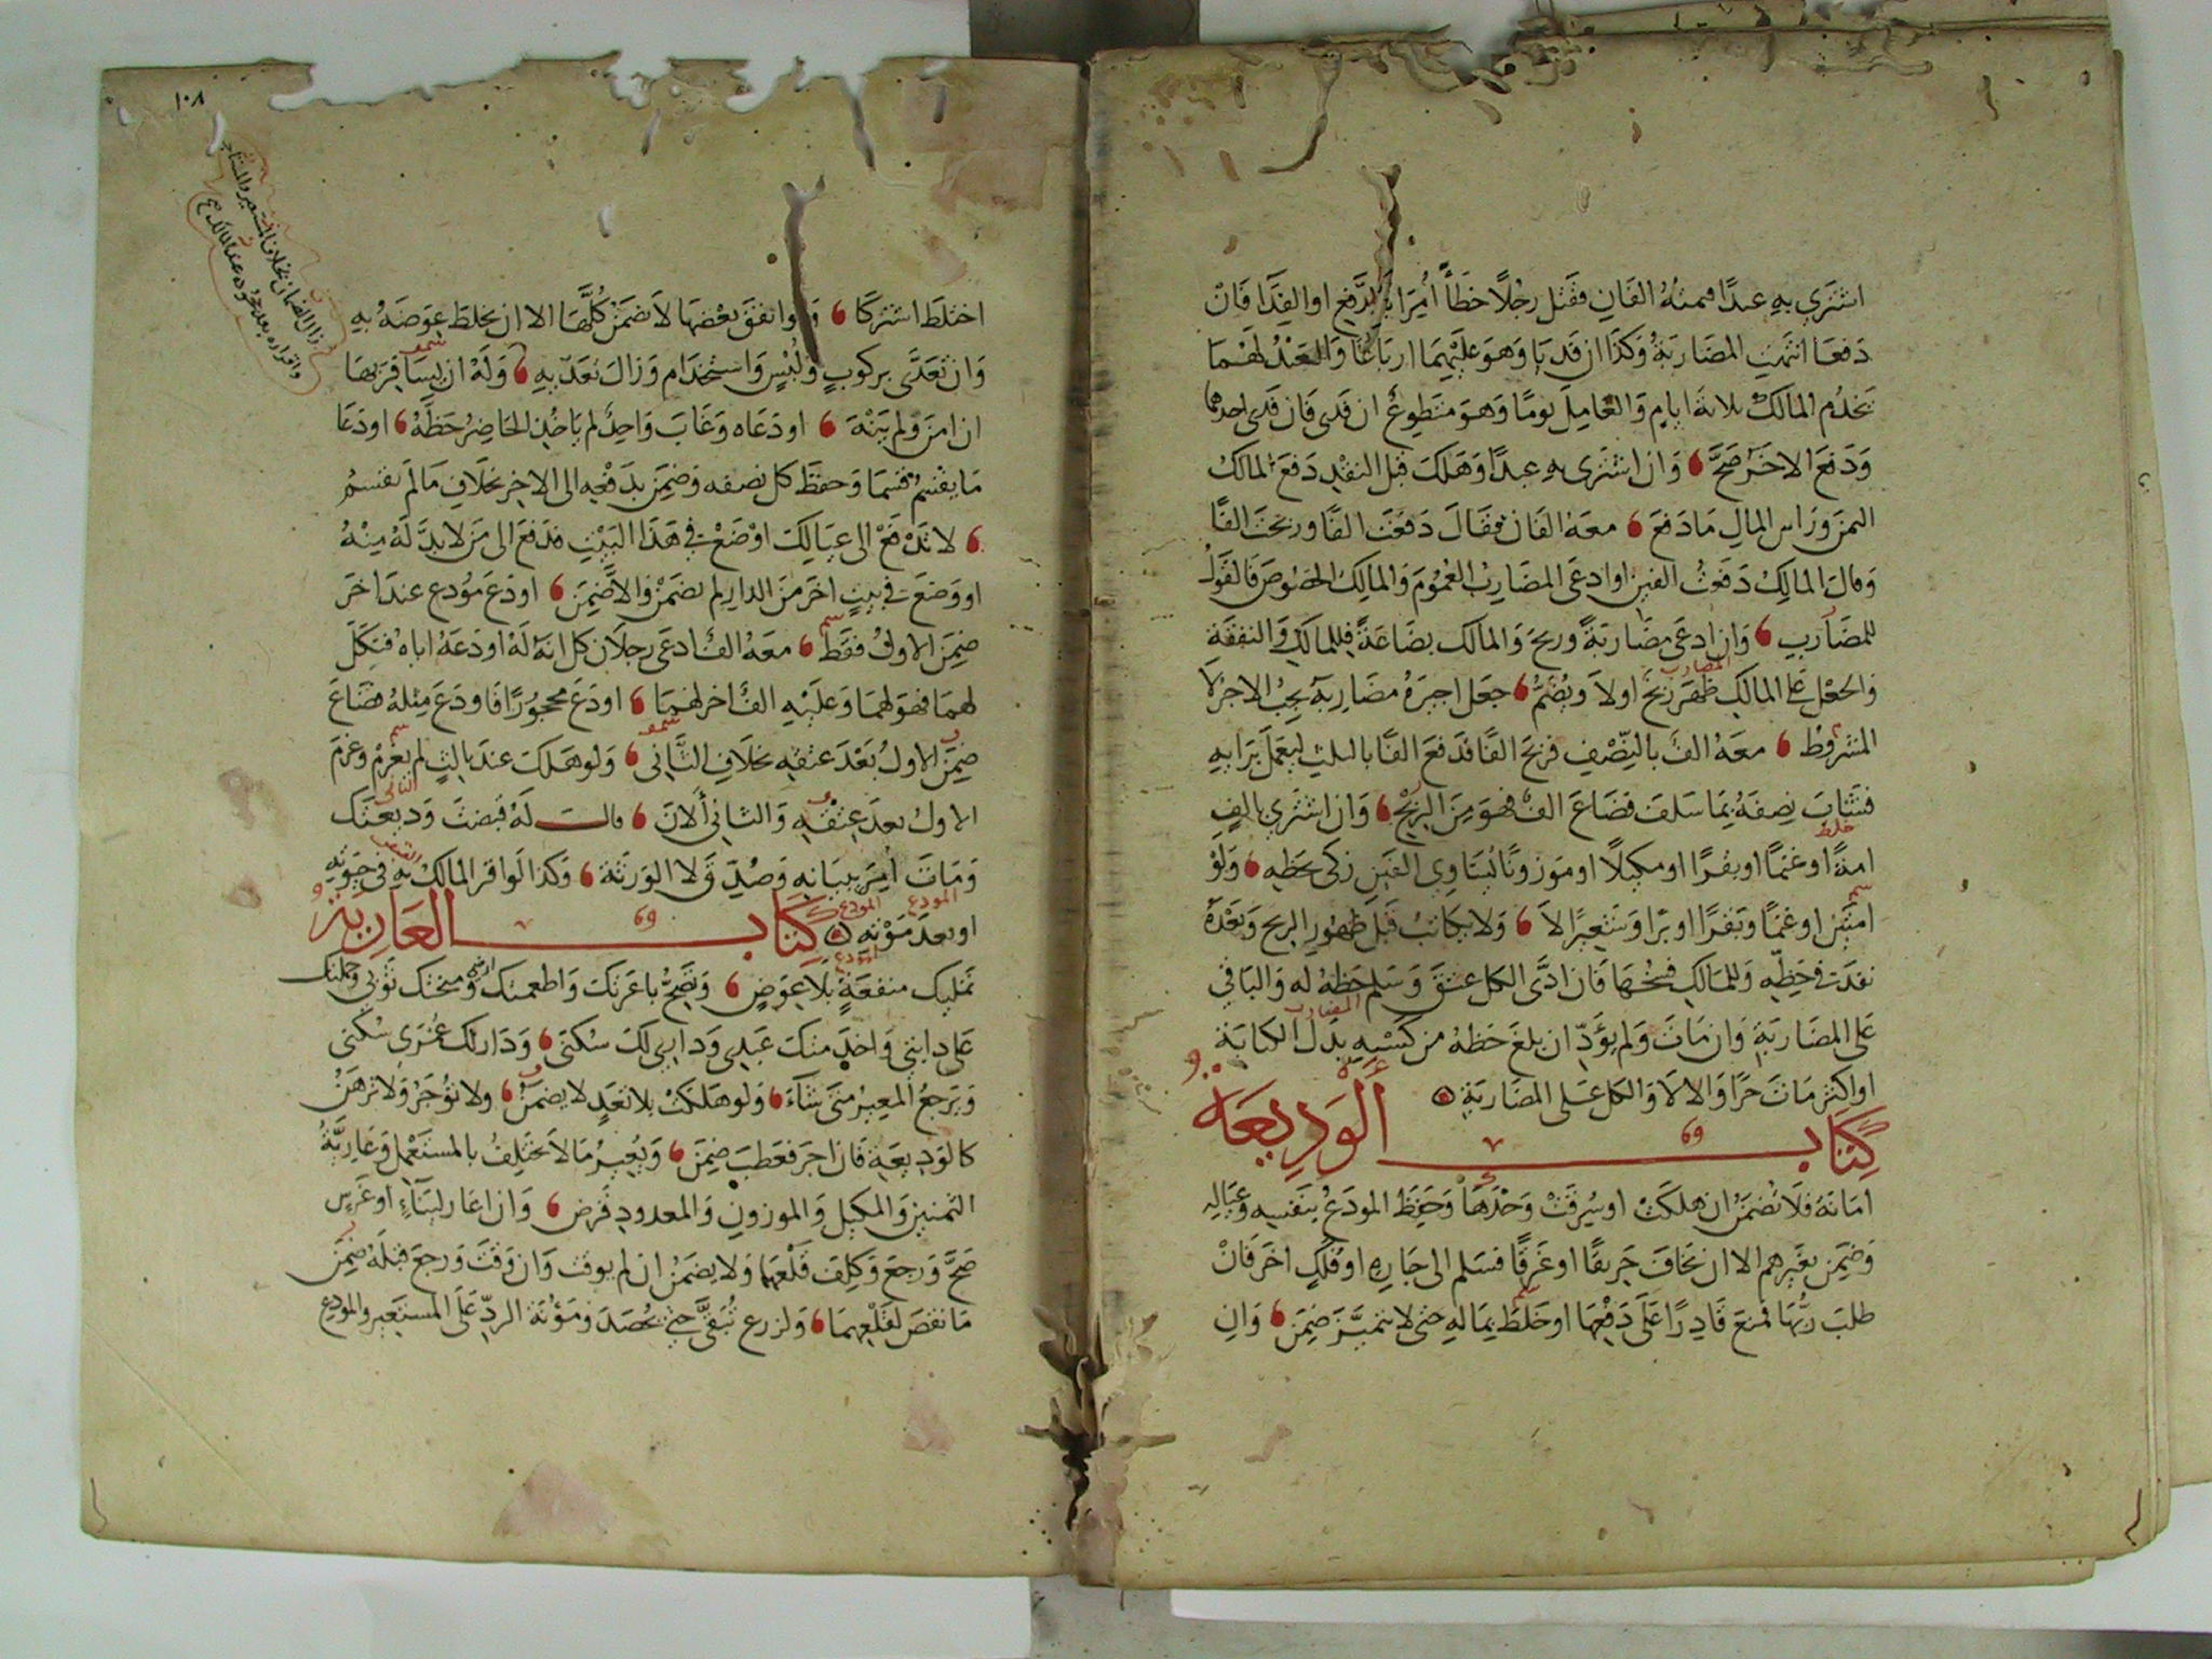 اشترى به عبدا قيمته الفان فقتل رجلا خطأ أمرا بالدفع او الفدا فان
دفعا انتهت المضاربة وكذا ان فديا وهو عليهما ارباعا والعبد لهما
يخدم المالك ثلاثة ايام والعامل يوما وهو متطوع ان فدى فان فدى احدهما
ودفع الاخر صح وان اشترى به عبدا وهلك قبل النقد دفع المالك
الثمن وراس المال ما دفع معه الفان فقال دفعت الفا وربحت الفا
وقال المالك دفعت الفين او ادعى المضارب العموم والمالك الخصوص فالقول
للمضارب وان ادعى مضاربة وربح والمالك بضاعة فللمالك والنفقة
والجعل على المالك ظهر ربح اولا ويضم جعل اجيره مضاربة يجب الاجر لا
المشروط معه الف بالنصف فربح الفا فدفع الفا بالثلث ليعمل برايه
فشاب نصفه بما سلف فضاع الف فهو من الربح وان اشترى بالف
امة او غنما او بقرا او مكيلا او موزونا يساوي الفين زكى حظه ولو
امتين او غنما وبقرا او برا وشعيرا لا ولا يكاتب قبل ظهور الربح وبعده
نفدت في حظه وللمالك فسخها فان ادى الكل عتق وسلم حظه له والباقي
على المضاربة وان مات ولم يؤد ان بلغ حظه من كسبه بدل الكتابة
او اكثر مات حرا والا لا والكل على المضاربة
كتاب الوديعة
امانة فلا تضمن ان هلكت او سرقت وحدها وحفظ المودع بنفسه وعياله
وضمن بغيرهم الا ان يخاف حريقا او غرقا فسلم الى جاره او فلك اخر فان
طلب ربها فمنع قادرا على دفعها او خلط بماله حتى لا تتميز ضمن وان
١٠٨
زال الضمان بخلاف المستعير والمستاجر
واقراره بعد جحوده عند المالك
اختلط اشتركا ولو انفق بعضها لا تضمن كلها الا ان يخلط عوضه به
وان تعدى بركوب ولبس واستخدام وزال تعديه وله ان يسافر بها
ان امن ولم ينه اودعاه وغاب واحد لم ياخذ الحاضر حظه اودعا
ما يقسم قسما وحفظ كل نصفه وضمن بدفعه الى الاخر بخلاف ما لم يقسم
لا تدفع الى عيالك او ضع في هذا البيت فدفع الى من لا بد له منه
او وضع في بيت اخر من الدار لم يضمن والا ضمن اودع مودع عند اخر
ضمن الاول فقط معه الف ادعى رجلان كل انه له اودعه اياه فنكل
لهما فهو لهما وعليه الف اخر لهما اودع محجورا فاودع مثله فضاع
ضمن الاول بعد عتقه بخلاف الثاني ولو هلك عند ثالث لم يغرم وغرم
الاول بعد عتقه والثاني ألان قالت له قبضت وديعتك
ومات أمر ببيانه وصدق ولا الورثة وكذا لو اقر المالك به في حيوته
او بعد موته كتاب العارية
تمليك منفعة بلا عوض وتصح باعرتك واطعمتك ارضي ومنحتك ثوبي وحملتك
على دابتي واخدمتك عبدي وداري لك سكنى وداري لك عمرى سكنى
ويرجع المعير متى شاء ولو هلكت بلا تعد لا يضمن ولا تؤجر ولا ترهن
كالوديعة فان اجر فعطب ضمن ويعير ما لا يختلف بالمستعمل وعارية
الثمنين والمكيل والموزون والمعدود قرض وان اعار لبناء او غرس
صح ورجع وكلف قلعهما ولا يضمن ان لم يوقت وان وقت ورجع قبله ضمن
ما نقص لقلعهما ولزرع تبقى حتى تحصد ومؤنة الرد على المستعير والمودع